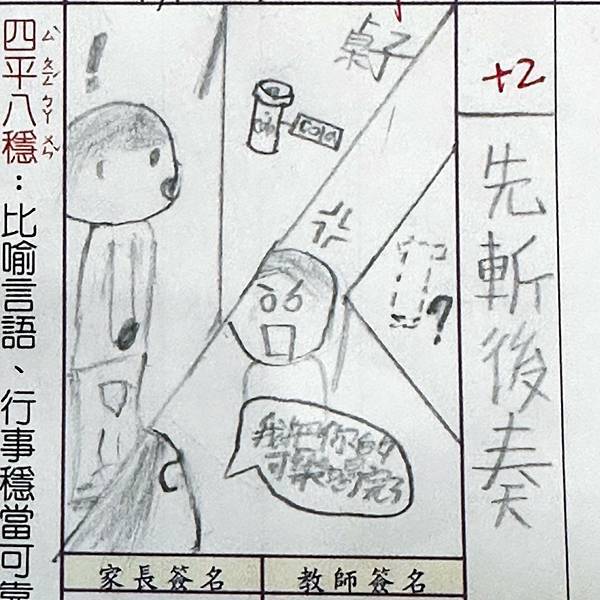 四平八穩：比喻言語、行事穩當可靠
ㄙˋ ㄆㄧㄥˊ ㄅㄚ ㄨㄣˇ
!
桌子
cola
?
我把你的
可樂喝完了
+2
先斬後奏
家長簽名
教師簽名